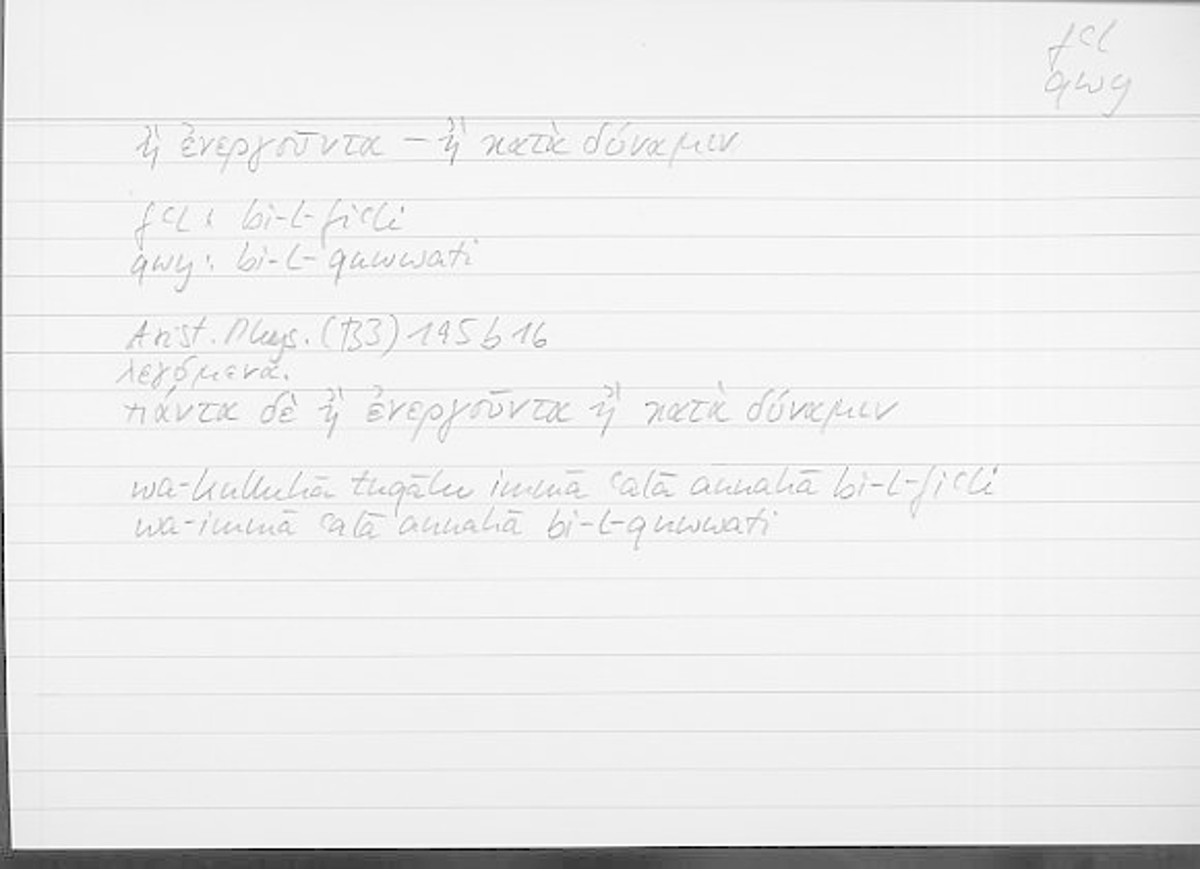 fʿl
qwy
ἢ ἐνεργοῦντα – ἢ κατὰ δύναμιν
fʿl: bi-l-fiʿli
qwy: bi-l-quwwati
Arist. Phys. (B3) 195 b 16
λεγόμενα.
πάντα δὲ ἢ ἐνεργοῦντα ἢ κατὰ δύναμιν
wa-kulluhā tuqālu immā ʿalā annahā bi-l-fiʿli
wa-immā ʿalā annahā bi-l-quwwati